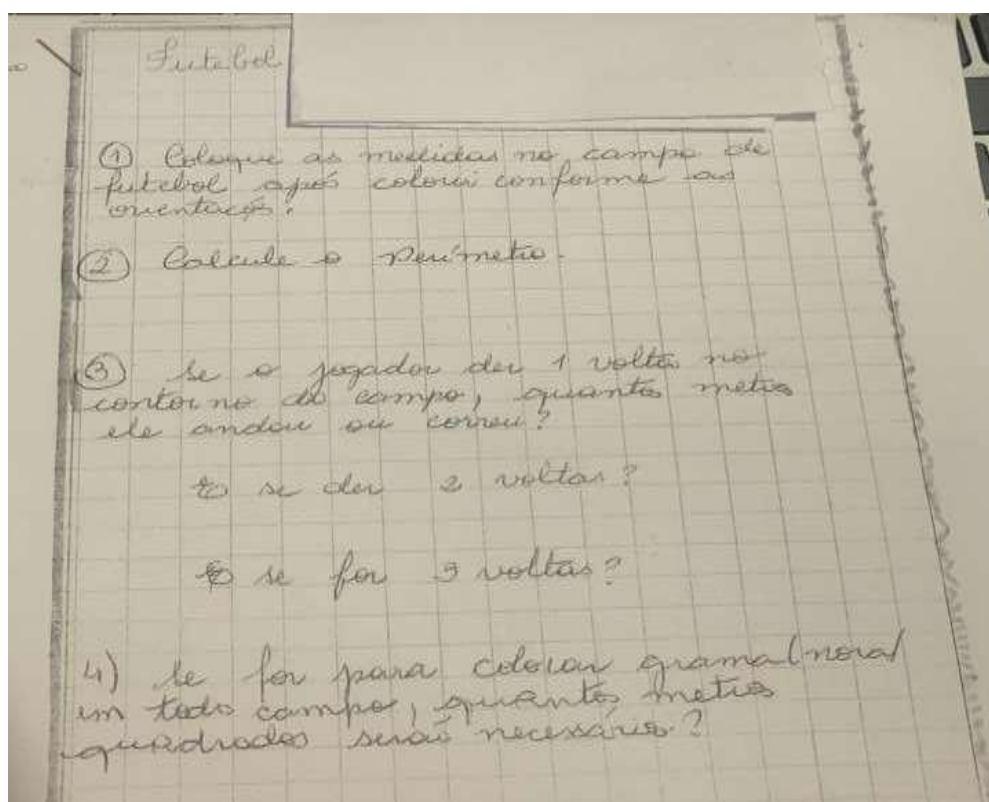 Futebol
① Coloque as medidas no campo de
futebol após colorir conforme as
orientações.
② Calcule o perímetro.
③ Se o jogador der 1 volta no
contorno do campo, quantos metros
ele andou ou correu?
↳ se der 2 voltas?
↳ se for 3 voltas?
4) Se for para colocar grama (nova)
em todo campo, quantos metros
quadrados serão necessários?